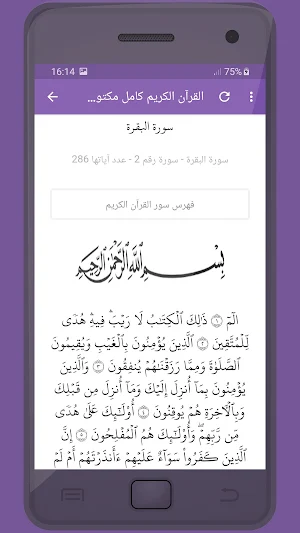 16:14 75%
القرآن الكريم كامل مكتو...
سورة البقرة
سورة البقرة - سورة رقم 2 - عدد آياتها 286
فهرس سور القرآن الكريم
بسم الله الرحمن الرحيم
الٓمٓ ۝١ ذَٰلِكَ ٱلْكِتَٰبُ لَا رَيْبَ ۛ فِيهِ ۛ هُدًى
لِّلْمُتَّقِينَ ۝٢ ٱلَّذِينَ يُؤْمِنُونَ بِٱلْغَيْبِ وَيُقِيمُونَ
ٱلصَّلَوٰةَ وَمِمَّا رَزَقْنَٰهُمْ يُنفِقُونَ ۝٣ وَٱلَّذِينَ
يُؤْمِنُونَ بِمَآ أُنزِلَ إِلَيْكَ وَمَآ أُنزِلَ مِن قَبْلِكَ
وَبِٱلْءَاخِرَةِ هُمْ يُوقِنُونَ ۝٤ أُو۟لَٰٓئِكَ عَلَىٰ هُدًى
مِّن رَّبِّهِمْ ۖ وَأُو۟لَٰٓئِكَ هُمُ ٱلْمُفْلِحُونَ ۝٥ إِنَّ
ٱلَّذِينَ كَفَرُوا۟ سَوَآءٌ عَلَيْهِمْ ءَأَنذَرْتَهُمْ أَمْ لَمْ